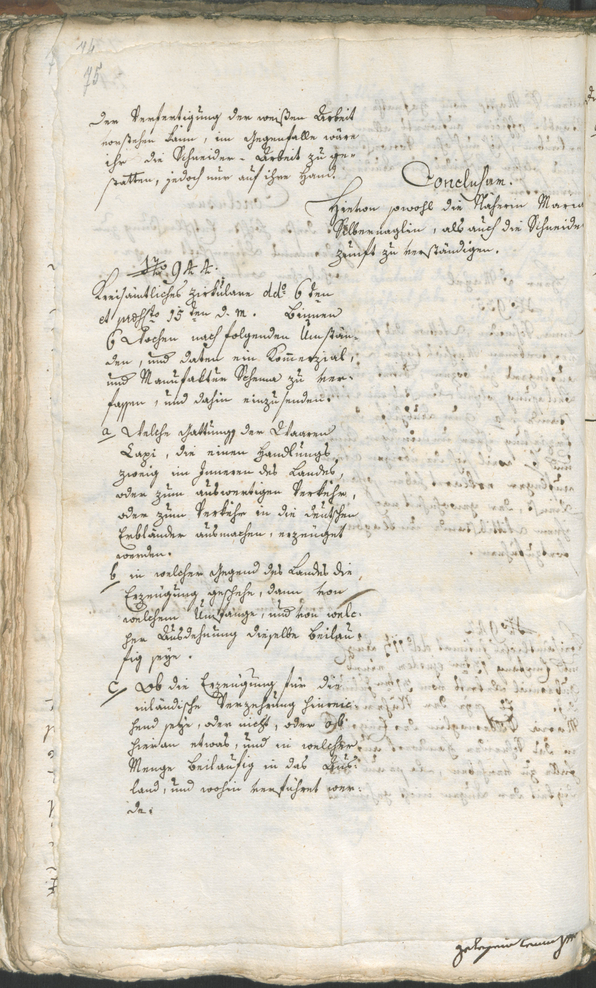 74
75
der Verfertigung der weißen Arbeit
vorstehen kann, im Gegenfalle wäre
ihr die Schneider-Arbeit zu ge-
statten, jedoch nur auf ihre Hand.
Conclusum.
Hievon sowohl die Näherin Maria
Silbernaglin, als auch die Schneider
zunft zu verständigen.
Nro 944.
Kreisämtliches Zirkulare ddo 6ten
et 15ten d. M. Binnen
6 Wochen nach folgenden Umstän-
den, und daten ein Komerzial,
und Manufaktur Schema zu ver-
fassen, und dahin einzusenden.
a Welche Gattung der Waaren
die einen Handlungs
zweig im Inneren des Landes,
oder zum auswertigen Verkehr,
oder zum Verkehr in die deutschen
Erbländer ausmachen, erzeuget
werden.
b in welcher Gegend des Landes die
Erzeugung geschehe, dann von
welchem Umfange, und von welc-
her Ausdehnung dieselbe beiläu
fig seye.
c Ob die Erzeugung für die
inländische Verzehrung hinrei-
chend seye, oder nicht, oder ob
hievon etwas, und in welcher
Menge beiläufig in das Aus-
land, und wohin verführet wer-
de.